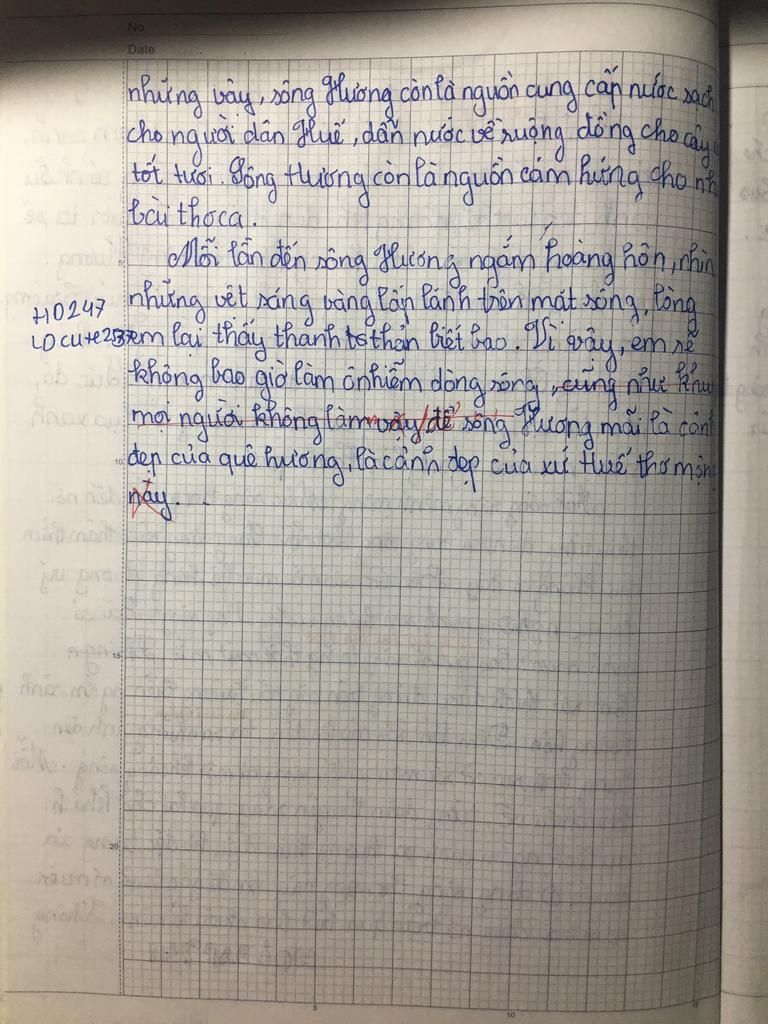 No
Date
những vây, sông Hương còn là nguồn cung cấp nước sạch
cho người dân Huế, dẫn nước về ruộng đồng cho cây
tốt tươi. Sông Hương còn là nguồn cảm hứng cho nh
bài thơ ca.
Mỗi lần đến sông Hương ngắm hoàng hôn, nhìn
những vệt sáng vàng lấp lánh trên mặt sông, lòng
em lại thấy thanh thản biết bao. Vì vậy, em sẽ
không bao giờ làm ô nhiễm dòng sông, cũng như khu
mọi người không làm vậy để sông Hương mãi là cảnh
đẹp của quê hương, là cảnh đẹp của xứ Huế thơ mộng
này.
HD247
5
10
15
20
5
10